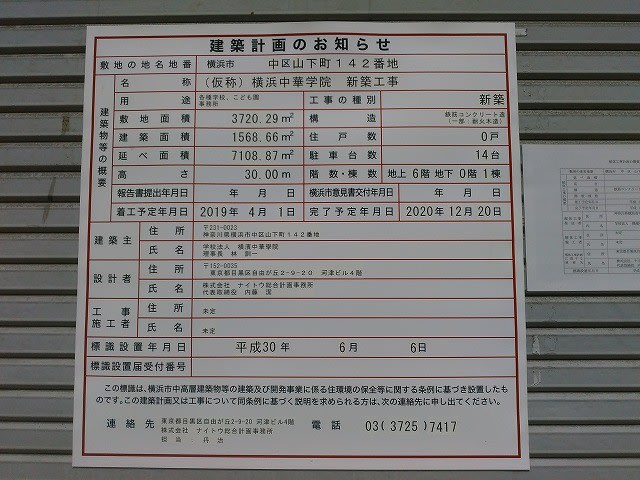 建築計画のお知らせ
敷地の地名地番 横浜市 中区山下町１４２番地
建築物等の概要
名称 (仮称) 横浜中華学院 新築工事
用途 各種学校、こども園 事務所 工事の種別 新築
敷地面積 3720.29㎡ 構造 鉄筋コンクリート造 (一部:耐火木造)
建築面積 1568.66㎡ 住戸数 0戸
延べ面積 7108.87㎡ 駐車台数 14台
高さ 30.00m 階数・棟数 地上 6階 地下 0階 1棟
報告書提出年月日 年 月 日 横浜市意見書交付年月日 年 月 日
着工予定年月日 2019年 4月 1日 完了予定年月日 2020年 12月 20日
建築主 住所 〒231-0023
神奈川県横浜市中区山下町１４２番地
氏名 学校法人 横濱中華學院
理事長 林 訓一
設計者 住所 〒152-0035
東京都目黒区自由が丘２-９-２０ 河津ビル４階
氏名 株式会社 ナイトウ総合計画事務所
代表取締役 内藤 潔
工事施工者 住所 未定
氏名 未定
標識設置年月日 平成30年 6月 6日
標識設置届受付番号
この標識は、横浜市中高層建築物等の建築及び開発事業に係る住環境の保全等に関する条例に基づき設置したも
のです。この建築計画又は工事について同条例に基づく説明を求められる方は、次の連絡先に申し出てください。
連絡先 東京都目黒区自由が丘2-9-20 河津ビル4階
株式会社 ナイトウ総合計画事務所
担当 丹治
電話 03( 3725 )7417